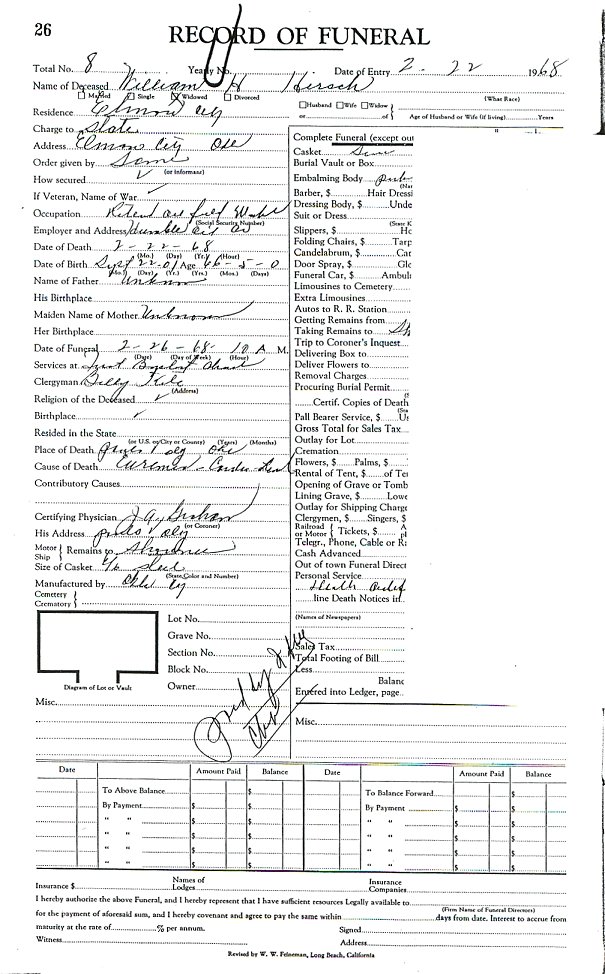 26
RECORD OF FUNERAL
Total No. 8 Yearly No. Date of Entry 2 - 22 1968
Name of Deceased William H Hirsch
Married Single Widowed Divorced
(What Race)
Husband Wife Widow
Residence Elmore City
or of Age of Husband or Wife (if living) Years
Charge to State
Address Elmore City
Order given by Same
(or informant)
How secured
If Veteran, Name of War
Occupation Retired oil field
(Social Security Number)
Employer and Address
Date of Death 2 - 22 - 68
(Mo.) (Day) (Yr.) (Hour)
Date of Birth Sept 22 - 01 Age 66 - 5 - 0
(Mo.) (Day) (Yr.) (Yrs.) (Mos.) (Days)
Name of Father Unknown
His Birthplace
Maiden Name of Mother Unknown
Her Birthplace
Date of Funeral 2 - 26 - 68 - 10 A M.
(Date) (Day of Week) (Hour)
Services at First Baptist Church
Clergyman Billy
(Address)
Religion of the Deceased
Birthplace
Resided in the State
(or U.S. or City or County) (Years) (Months)
Place of Death
Cause of Death
Contributory Causes
Certifying Physician
(or Coroner)
His Address
Motor Ship Remains to
Size of Casket
(State Color and Number)
Manufactured by
Cemetery
Crematory
Complete Funeral (except out
Casket Same
Burial Vault or Box
Embalming Body
Barber, $ Hair Dressi
Dressing Body, $ Unde
Suit or Dress
Slippers, $ Ho
Folding Chairs, $ Tarp
Candelabrum, $ Can
Door Spray, $ Glo
Funeral Car, $ Ambul
Limousines to Cemetery
Extra Limousines
Autos to R. R. Station
Getting Remains from
Taking Remains to
Trip to Coroner's Inquest
Delivering Box to
Deliver Flowers to
Removal Charges
Procuring Burial Permit
Certif. Copies of Death
Pall Bearer Service, $ Us
Gross Total for Sales Tax
Outlay for Lot
Cremation
Flowers, $ Palms, $
Rental of Tent, $ of Te
Opening of Grave or Tomb
Lining Grave, $ Lowe
Outlay for Shipping Charge
Clergymen, $ Singers, $
Railroad or Motor Tickets, $
Telegr., Phone, Cable or R
Cash Advanced
Out of town Funeral Direct
Personal Service
line Death Notices in
(Names of Newspapers)
Sales Tax
Total Footing of Bill
Less
Balanc
Entered into Ledger, page
Lot No.
Grave No.
Section No.
Block No.
Owner
Diagram of Lot or Vault
Misc.
Misc.
Date Amount Paid Balance Date Amount Paid Balance
To Above Balance $ To Balance Forward $
By Payment $ By Payment $
" " $ " " $
" " $ " " $
" " $ " " $
" " $ " " $
Insurance $ Names of Lodges Insurance Companies
I hereby authorize the above Funeral, and I hereby represent that I have sufficient resources Legally available to
(Firm Name of Funeral Directors)
for the payment of aforesaid sum, and I hereby covenant and agree to pay the same within days from date. Interest to accrue from
maturity at the rate of % per annum. Signed
Witness Address
Revised by W. W. Feineman, Long Beach, California